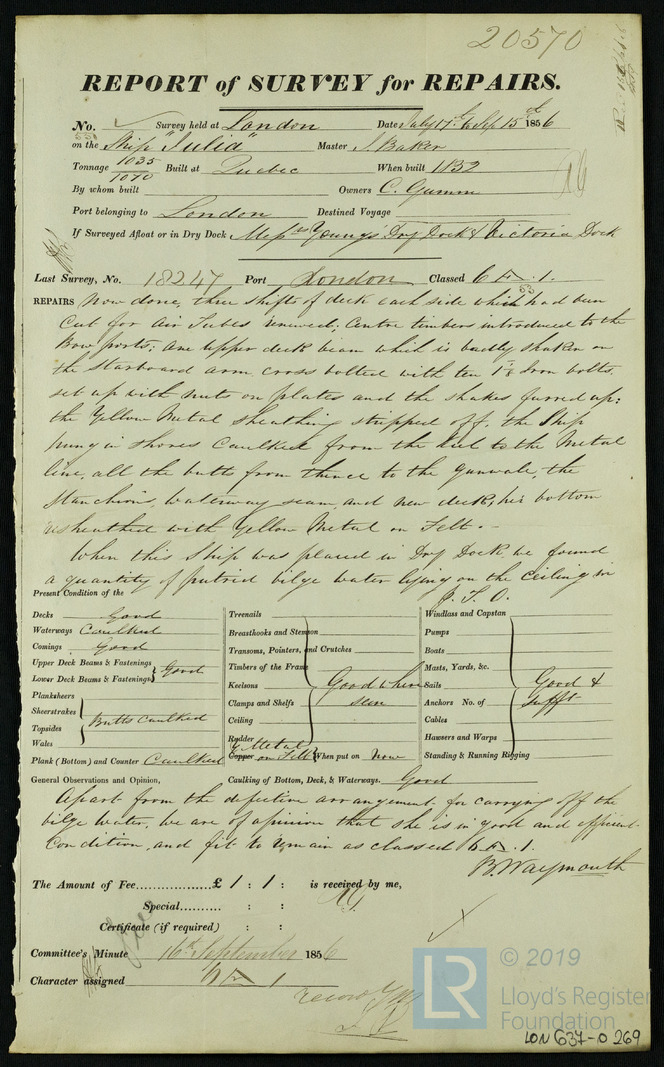 20570
REPORT of SURVEY for REPAIRS.
No. Survey held at London Date July 17th to Sep 15th 1856
on the Ship "Julia" Master J Baker
Tonnage 1035 Built at Quebec When built 1852
1070
By whom built Owners C. Gumm
Port belonging to London Destined Voyage
If Surveyed Afloat or in Dry Dock Messrs Youngs Dry Dock & Victoria Dock
Last Survey, No. 18247 Port London Classed 6 A .1.
53
REPAIRS Now done, three shifts of deck each side which had been
cut for Air Tubes renewed, Centre timbers introduced to the
Bow ports; one upper deck beam which is badly shaken on
the starboard arm cross bolted with ten 1 1/8 Iron bolts
set up with nuts on plates and the shakes furred up;
the Yellow Metal sheathing stripped off, the Ship
hung in shores Caulked from the keel to the Metal
line, all the butts from thence to the Gunwale, the
Stanchions, Waterway seam and new deck, her bottom
resheathed with Yellow Metal on Felt.
When this Ship was placed in Dry Dock we found
a quantity of putrid bilge water lying on the ceiling in
P. T. O.
Present Condition of the
Decks Good
Waterways Caulked
Comings Good
Upper Deck Beams & Fastenings
Lower Deck Beams & Fastenings } Good
Planksheers
Sheerstrakes
Topsides
Wales } Butts Caulked
Plank (Bottom) and Counter Caulked
Treenails
Breasthooks and Stemson
Transoms, Pointers, and Crutches
Timbers of the Frame
Keelsons Good where
Clamps and Shelfs seen
Ceiling
Rudder
Y Metal
Copper on Felt When put on Now
Windlass and Capstan
Pumps
Boats
Masts, Yards, &c.
Sails Good &
Anchors No. of Sufft
Cables
Hawsers and Warps
Standing & Running Rigging
General Observations and Opinion, Caulking of Bottom, Deck, & Waterways. Good
Apart from the defective arrangement for carrying off the
bilge water, we are of opinion that she is in good and efficient
Condition, and fit to remain as classed 6 A .1.
B. Waymouth
The Amount of Fee............... £ 1 : 1 : is received by me,
Special.......... : :
Certificate (if required) : :
Committee's Minute 16th September 1856
Character assigned 6 A 1
© 2019
LR
Lloyd's Register
Foundation
LON 637-0269